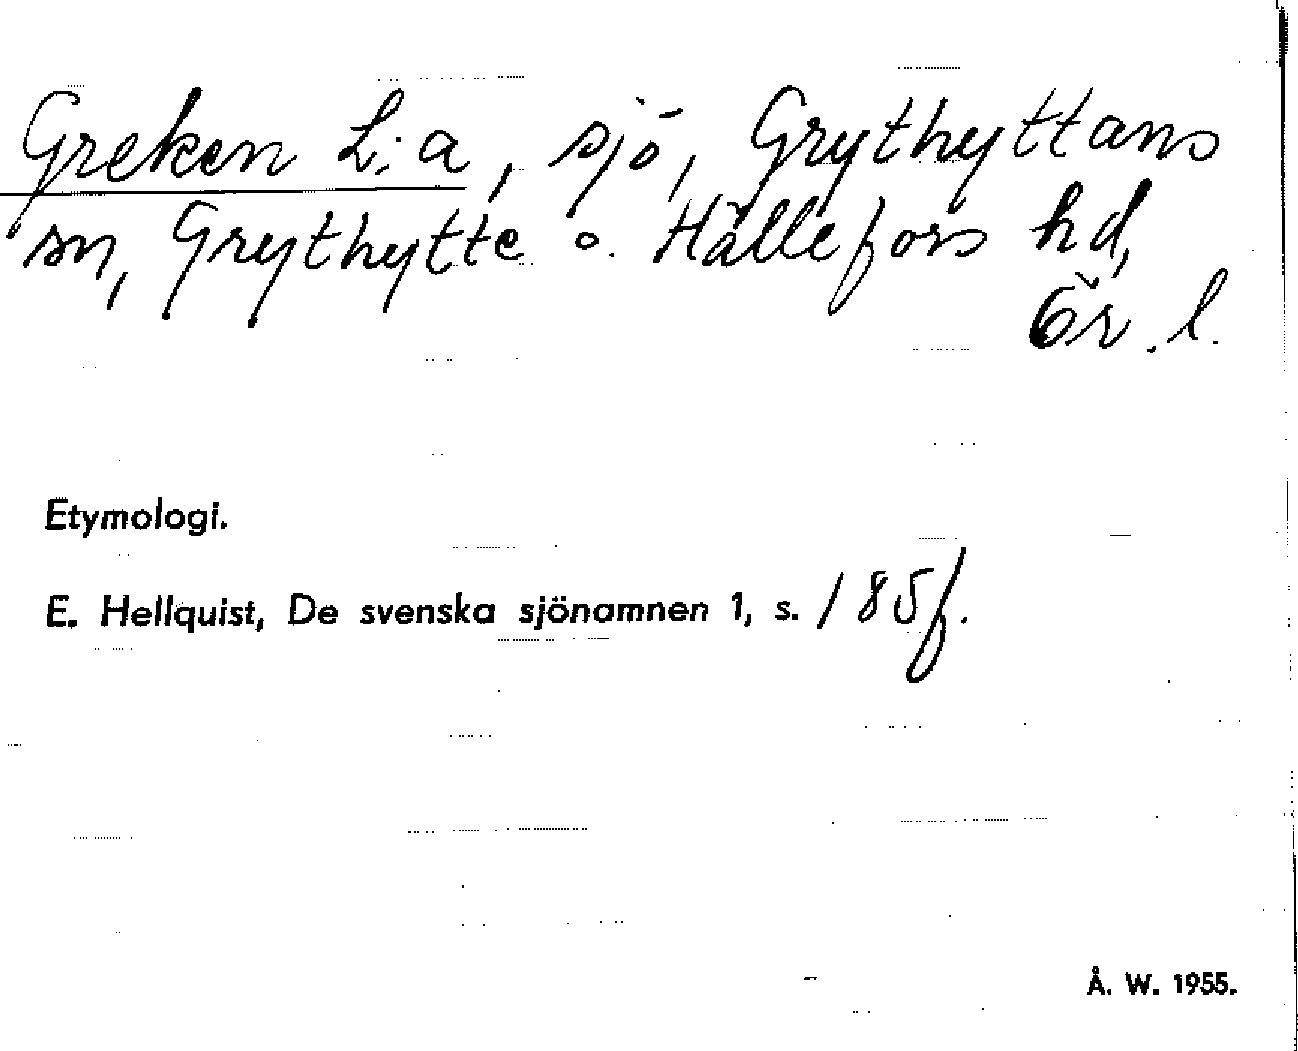 Greken L:a, sjö, Grythyttans
sn, Grythytte o. Hällefors hd,
Ör. l.
Etymologi.
E. Hellquist, De svenska sjönamnen 1, s. 185 f.
Å. W. 1955.